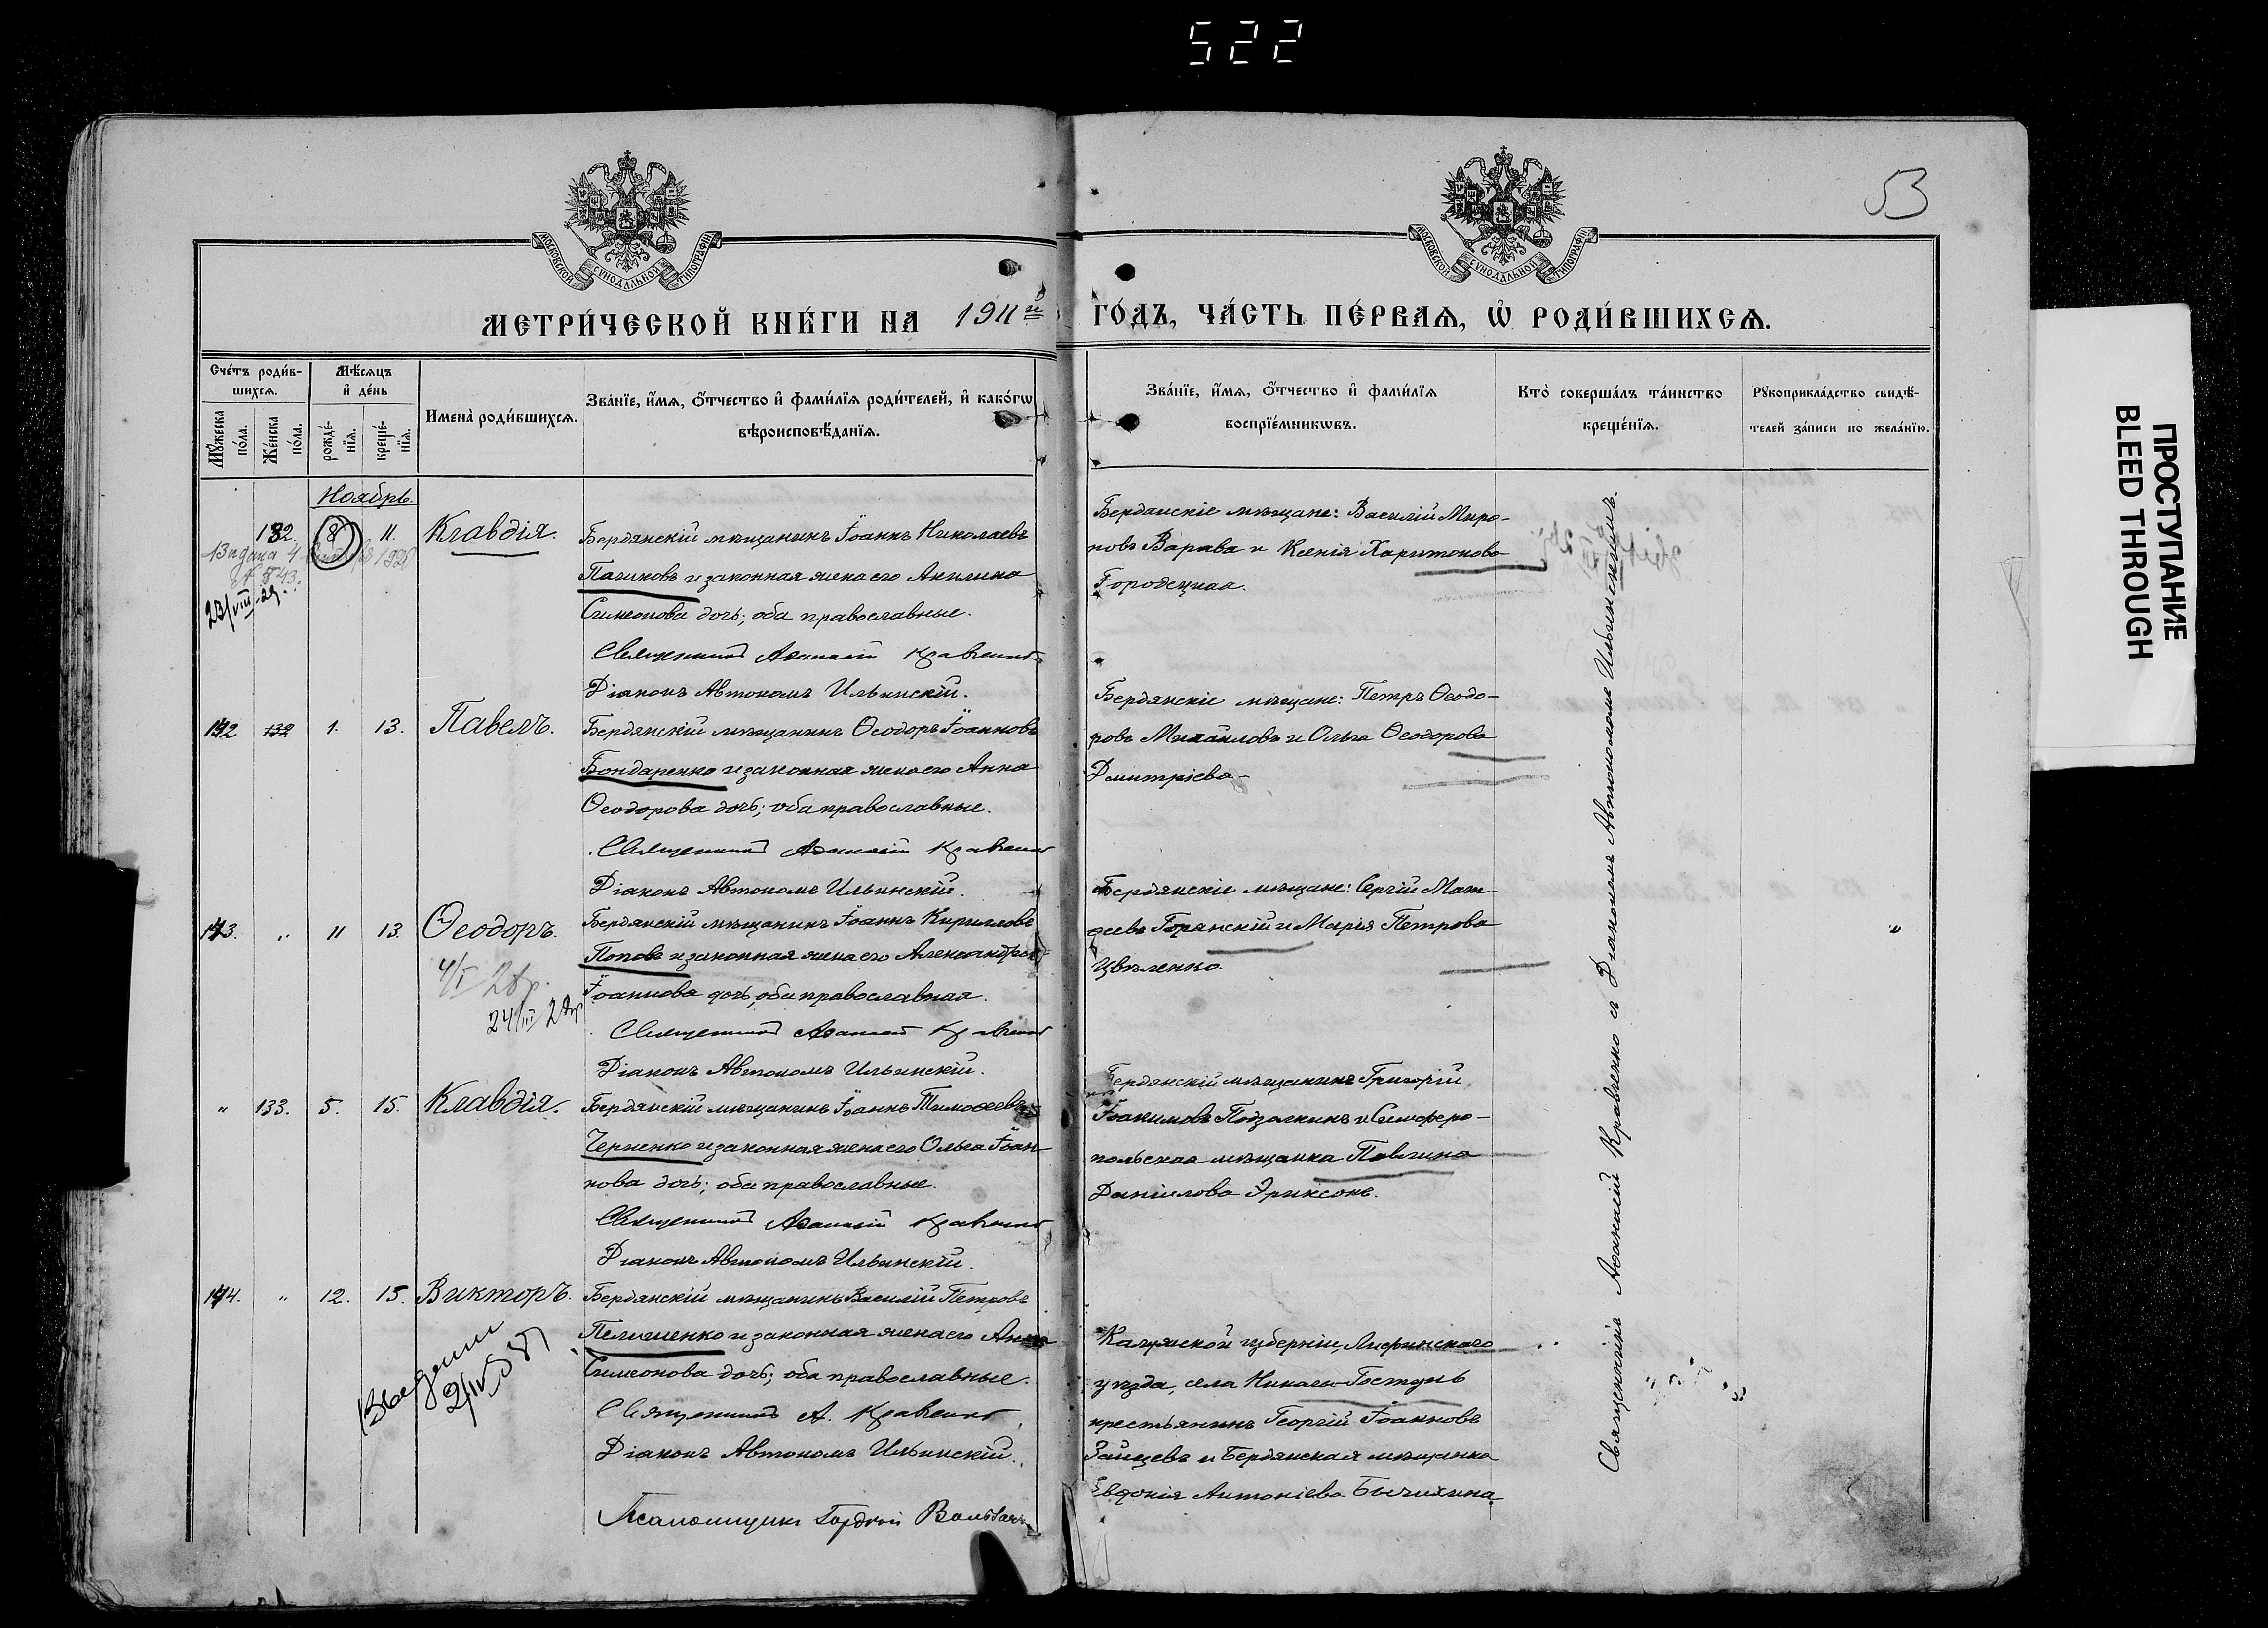 522
53
МОСКОВСКОЙ СУНОДАЛЬНОЙ ТИПОГРАФІИ
МОСКОВСКОЙ СУНОДАЛЬНОЙ ТИПОГРАФІИ
МЕТРИ́ЧЕСКОЙ КНИ́ГИ НА 1911й
ГО́ДЪ, ЧА́СТЬ ПЕ́РВАѦ, Ѡ҆ РОДИ́ВШИХСѦ.
Счéтъ роди́в-
шихсѧ.
Мꙋ́жеска по́ла.
Же́нска по́ла.
Мѣ́сѧцъ
и҆ де́нь
рожде́-
нїѧ.
креще́-
нїѧ.
Имена̀ роди́вшихсѧ.
Зва́нїе, и҆́мѧ, ѻ҆́тчество и҆ фами́лїѧ роди́телей, и҆ како́гѡ
вѣроисповѣ́данїѧ.
Зва́нїе, и҆́мѧ, ѻ҆́тчество и҆ фами́лїѧ
воспрїе́мникѡвъ.
Кто̀ соверша́лъ та́инство
креще́нїѧ.
Рꙋкоприкла́дство свидѣ́-
телей за́писи по жела́нїю.
Ноябрь.
132. 8 11. Клавдія.
Бердянскій мѣщанинъ Іоаннъ Николаевъ
и законная жена его Акилина
Симеонова дочь; оба православные.
Священникъ Аѳанасій Кравченко
Діаконъ Автономъ Ильинскій.
Бердянскіе мѣщане: Василій Миро-
новъ Варава и Ксенія Харитонова
Городецкая.
23/VIII 29.
142 132 1. 13. Павелъ.
Бердянскій мѣщанинъ Ѳеодоръ Іоанновъ
Бондаренко и законная жена его Анна
Ѳеодорова дочь; оба православные.
Священникъ Аѳанасій Кравченко
Діаконъ Автономъ Ильинскій.
Бердянскіе мѣщане: Петръ Ѳеодо-
ровъ Михайловъ и Ольга Ѳеодорова
Дмитріева
143. „ 11 13. Ѳеодоръ.
Бердянскій мѣщанинъ Іоаннъ Кирилловъ
Поповъ и законная жена его Александра
Іоаннова дочь, оба православная.
Священникъ Аѳанасій Кравченко
Діаконъ Автономъ Ильинскій.
Бердянскіе мѣщане: Сергій Мат-
ѳеевъ Горянскій и Марія Петрова
Цвѣленко.
„
4/I 28р.
24/III 28р
„ 133. 5. 15. Клавдія.
Бердянскій мѣщанинъ Іоаннъ Тимоѳеевъ
Черненко и законная жена его Ольга Іоан-
нова дочь; оба православные.
Священникъ Аѳанасій Кравченко
Діаконъ Автономъ Ильинскій.
Бердянскій мѣщанинъ Григорій
Іоакимовъ Подзалкинъ и Симферо-
польская мѣщанка Павлина
Даніилова Эриксонъ.
144. „ 12. 15. Викторъ.
Бердянскій мѣщанинъ Василій Петровъ
и законная жена его Анна
Симеонова дочь; оба православные.
Священникъ А. Кравченко
Діаконъ Автономъ Ильинскій.
Псаломщикъ Гордѣй
Калужской губерніи,
уѣзда, села
крестьянинъ Георгій Іоанновъ
Зайцевъ и Бердянская мѣщанка
Евдокія Антоніева Бычихина
Священникъ Аѳанасій Кравченко съ Діакономъ Автономомъ Ильинскимъ.
ПРОСТУПАНИЕ
BLEED THROUGH